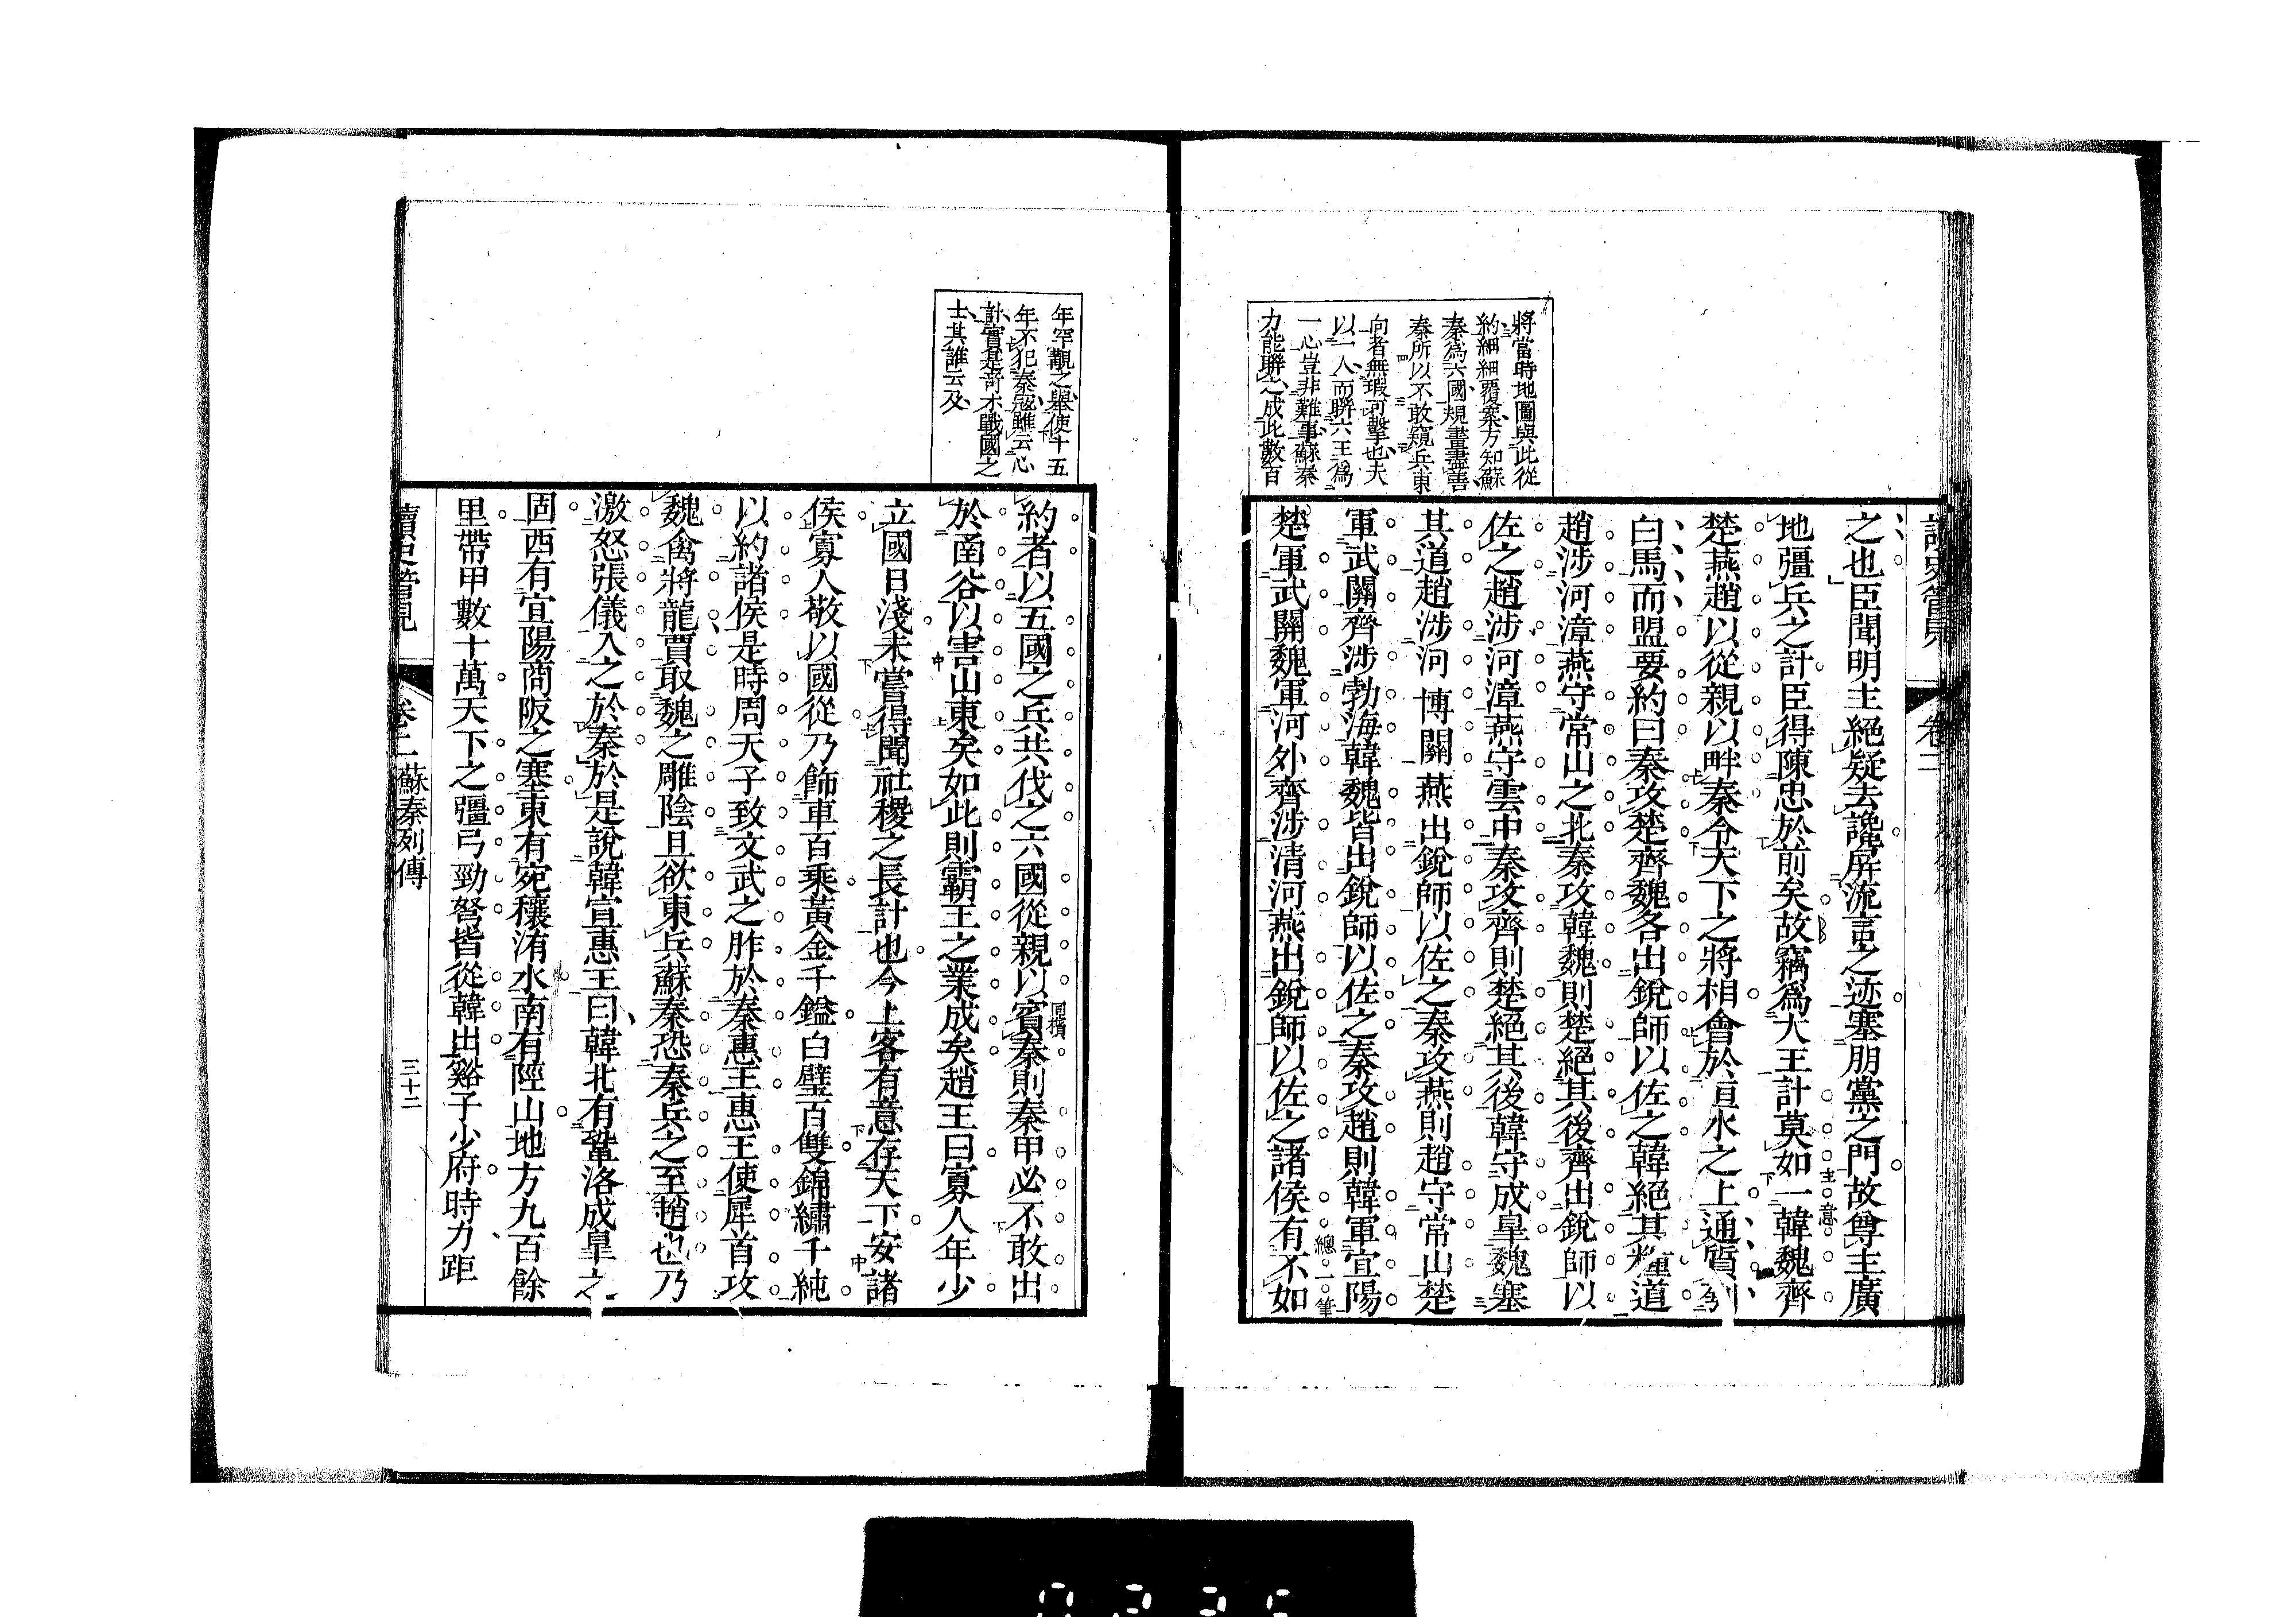 將當時地圖與此從
約細細覆案方知蘇
秦為六國規畫盡善
秦所以不敢窺兵東
向者無瑕可擊也夫
以一人而聯六王為
一心豈非難事蘇秦
力能聯之成此數百
卷二
之也臣聞明主絕疑去讒屏流言之迹塞朋黨之門故尊主廣
地彊兵之計臣得陳忠於前矣故竊為大王計莫如一韓魏齊
主意
楚燕趙以從親以畔秦令天下之將相會於洹水之上通質
白馬而盟要約曰秦攻楚齊魏各出銳師以佐之韓絕其糧道
趙涉河漳燕守常山之北秦攻韓魏則楚絕其後齊出銳師以
佐之趙涉河漳燕守雲中秦攻齊則楚絕其後韓守成皐魏塞
其道趙涉河博關燕出銳師以佐之秦攻燕則趙守常山楚
軍武關齊涉勃海韓魏皆出銳師以佐之秦攻趙則韓軍宜陽
楚軍武關魏軍河外齊涉清河燕出銳師以佐之諸侯有不如
總一筆
年罕覯之舉使十五
年不犯秦寇雖云心
計實是奇才戰國之
士其誰云及
約者以五國之兵共伐之六國從親以賓秦則秦甲必不敢出
同擯
於函谷以害山東矣如此則霸王之業成矣趙王曰寡人年少
立國日淺未嘗得聞社稷之長計也今上客有意存天下安諸
侯寡人敬以國從乃飾車百乘黃金千鎰白璧百雙錦繡千純
以約諸侯是時周天子致文武之胙於秦惠王惠王使犀首攻
魏禽將龍賈取魏之雕陰且欲東兵蘇秦恐秦兵之至趙也乃
激怒張儀入之於秦於是說韓宣惠王曰韓北有鞏洛成皐之
固西有宜陽商阪之塞東有宛穰洧水南有陘山地方九百餘
里帶甲數十萬天下之彊弓勁弩皆從韓出谿子少府時力距
讀史管見
卷二 蘇秦列傳
三十二